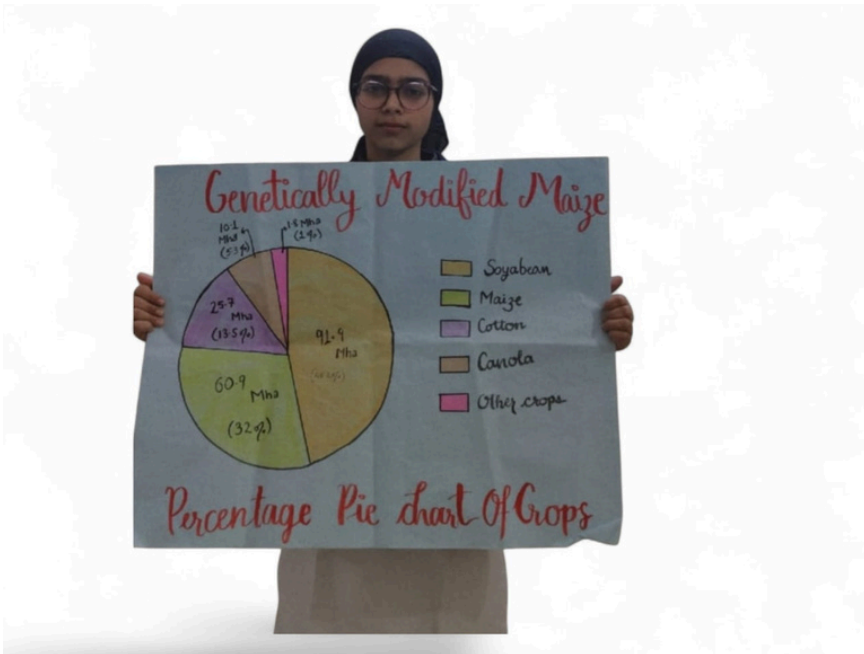 Genetically Modified Maize
10.1
Mha
(5.3%)
Mha
(1%)
25.7
Mha
(13.5%)
91.9
Mha
60.9
Mha
(32%)
Soyabean
Maize
Cotton
Canola
Other crops
Percentage Pie chart Of Crops